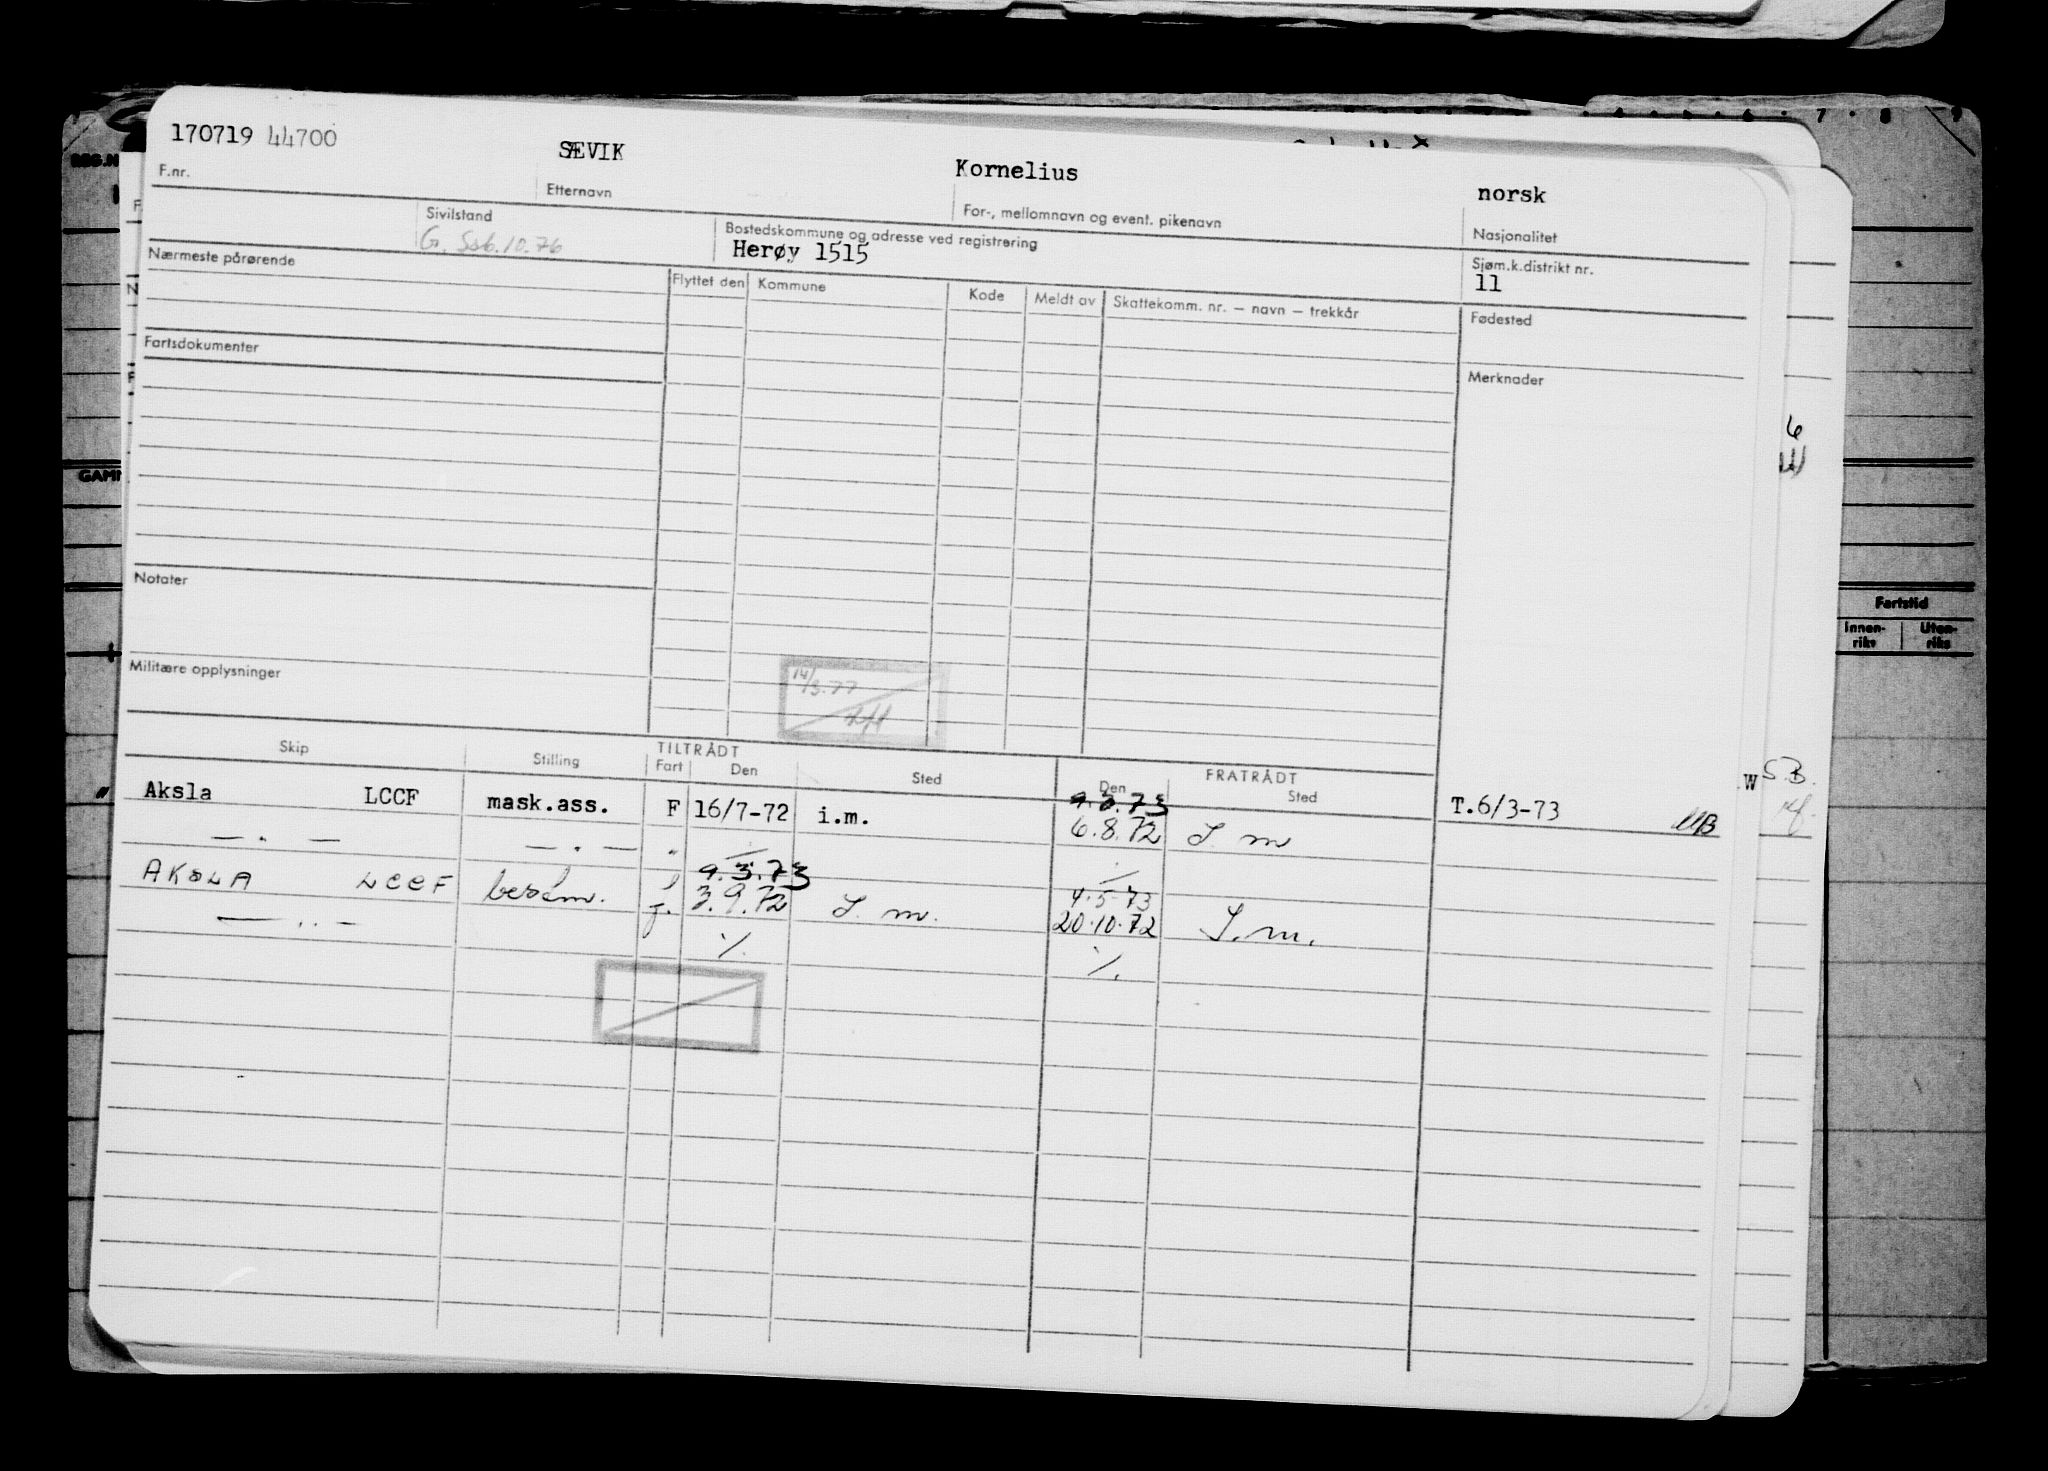 170719 44700 SÆVIK Kornelius norsk
F.nr. Etternavn For-, mellomnavn og event. pikenavn Nasjonalitet
Sivilstand Bostedskommune og adresse ved registrering Sjøm.k.distrikt nr.
G. Ssb.10.76 Herøy 1515 11
Nærmeste pårørende Flyttet den Kommune Kode Meldt av Skattekomm. nr. — navn — trekkår Fødested
Fartsdokumenter Merknader
Notater
Militære opplysninger
14/3.77
Skip Stilling TILTRÅDT FRATRÅDT
Fart Den Sted Den Sted
9.3.73
Aksla LCCF mask.ass. F 16/7-72 i.m. 6.8.72 I m T.6/3-73 MB
— . — — . — "
9.3.73 4.5-73
AKSLA LCCF besem. f. 3.9.72 I. m. 20.10.72 I. m.
— . . — ./. ./.
REG.N
GAMN
Fartstid
Innen-
riks
Uten-
riks
6
W S.B.
6 7 8 9